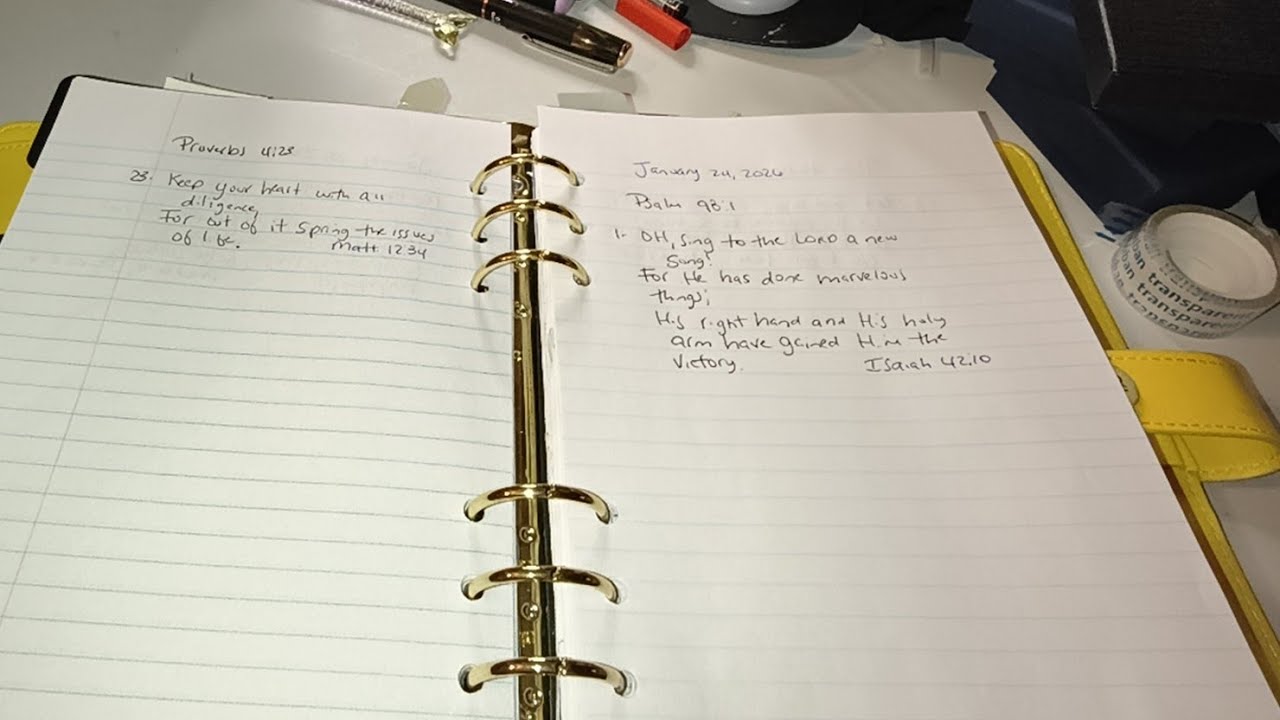 Proverbs 4:23
23. Keep your heart with all
diligence,
For out of it spring the issues
of life. Matt 12:34
January 24, 2026
Psalm 98:1
1. OH, sing to the LORD a new
Song!
For He has done marvelous
things;
His right hand and His holy
arm have gained Him the
Victory. Isaiah 42:10
transparent
transparen
transparen